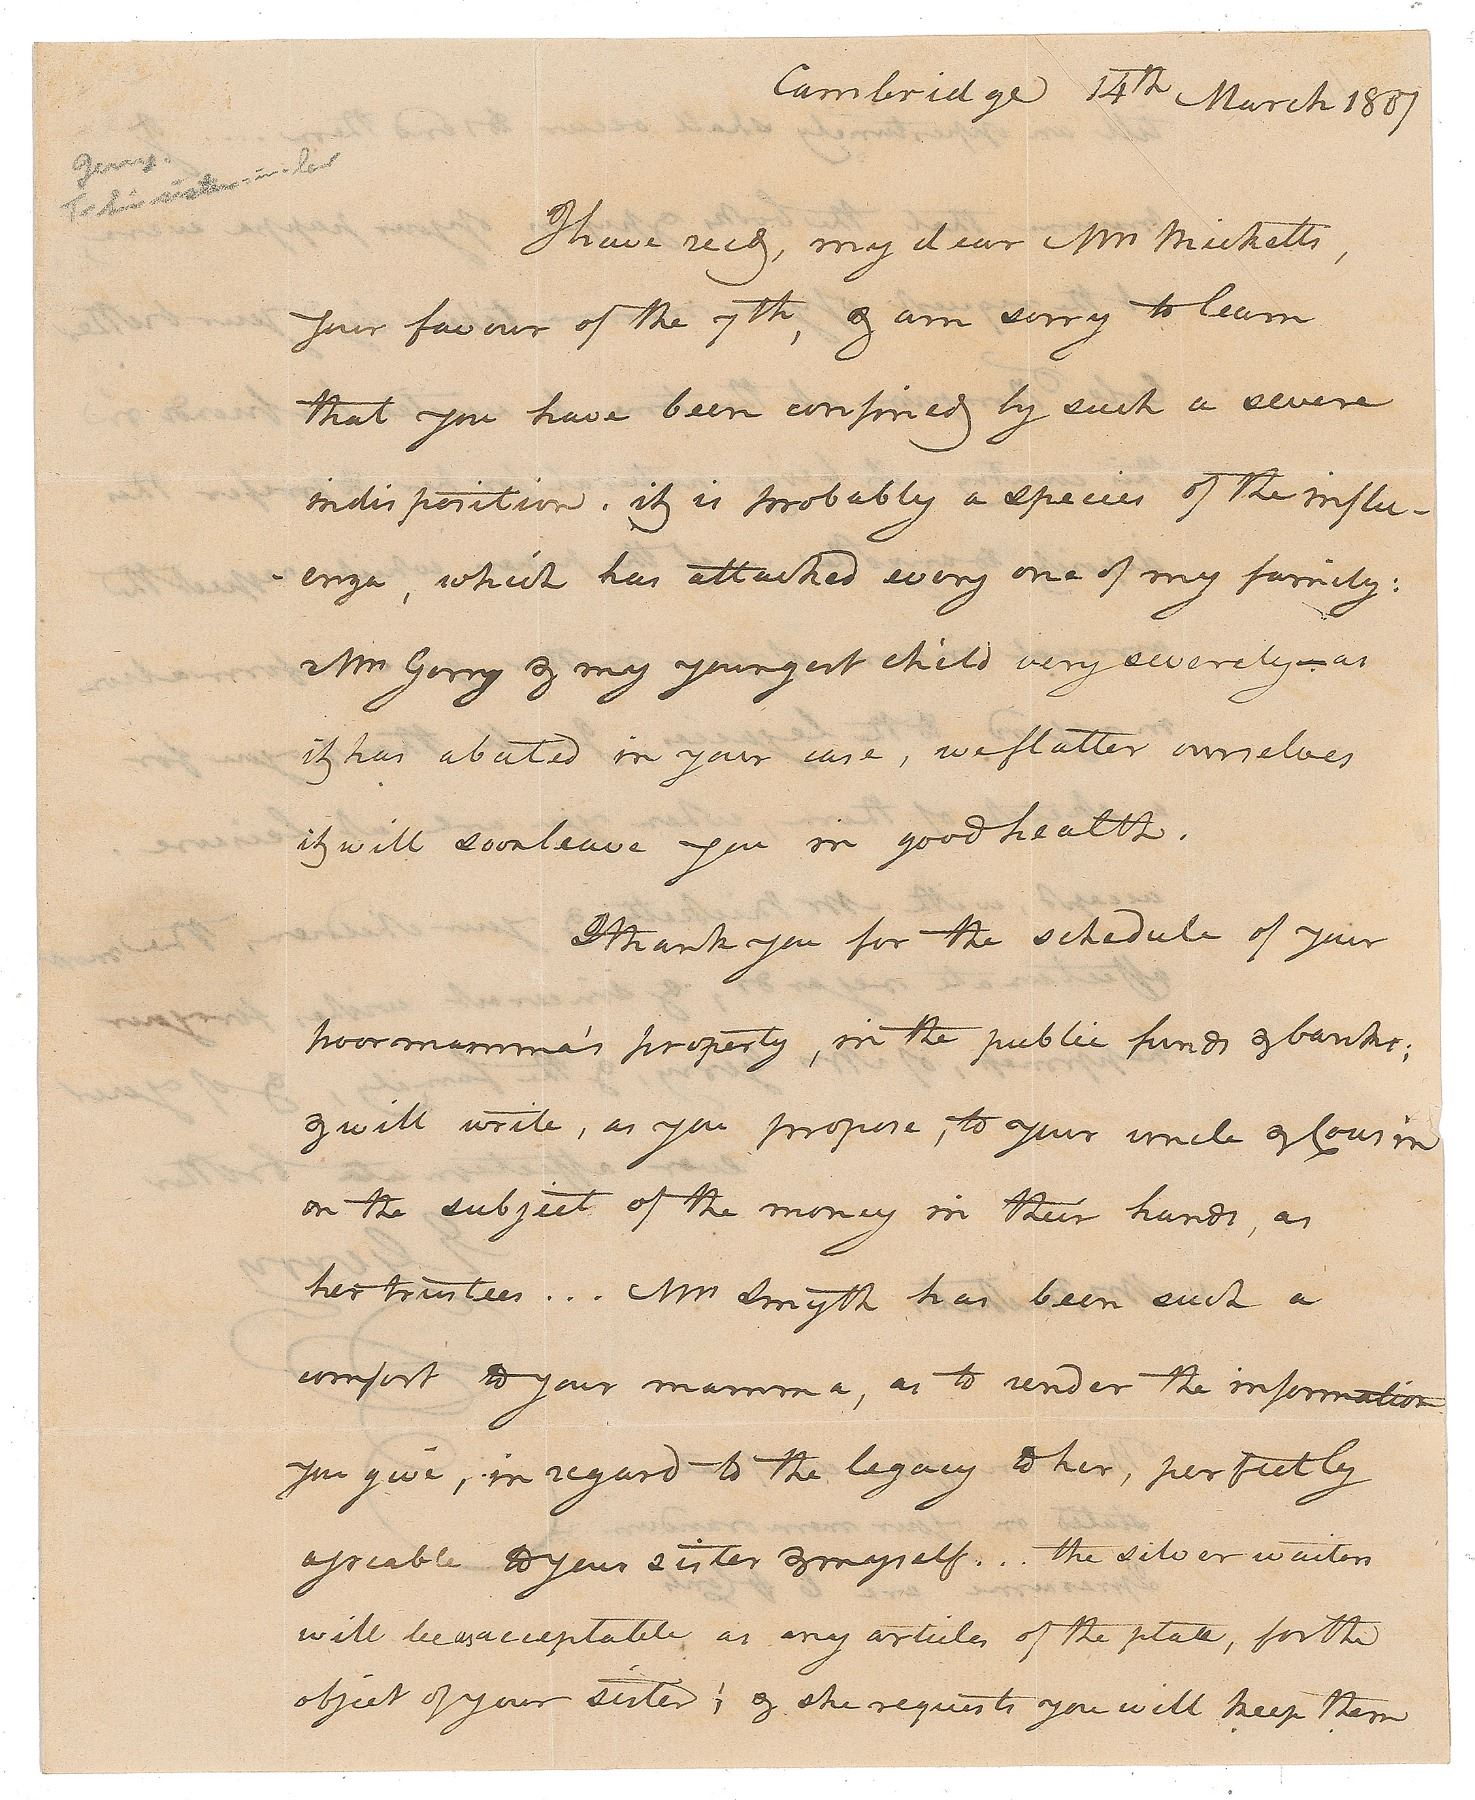 Cambridge 14th March 1807
Gerry.
To his sister-in-law
I have recd, my dear Mrs Micketts,
your favour of the 7th, & am sorry to learn
that you have been confined by such a severe
indisposition. it is probably a species of the influ-
-enza, which has attacked every one of my family:
Mrs Gerry & my youngest child very severely — as
it has abated in your case, we flatter ourselves
it will soon leave you in good health.
I thank you for the schedule of your
poor mamma's property, in the public funds & banks;
& will write, as you propose, to your uncle & Cousin
on the subject of the money in their hands, as
her trustees... Mrs Smyth has been such a
comfort to your mamma, as to render the information
you give, in regard to the legacy to her, perfectly
agreable to your sister & myself... the silver waiters
will be as acceptable as any articles of the plate, for the
object of your sister; & she requests you will keep them